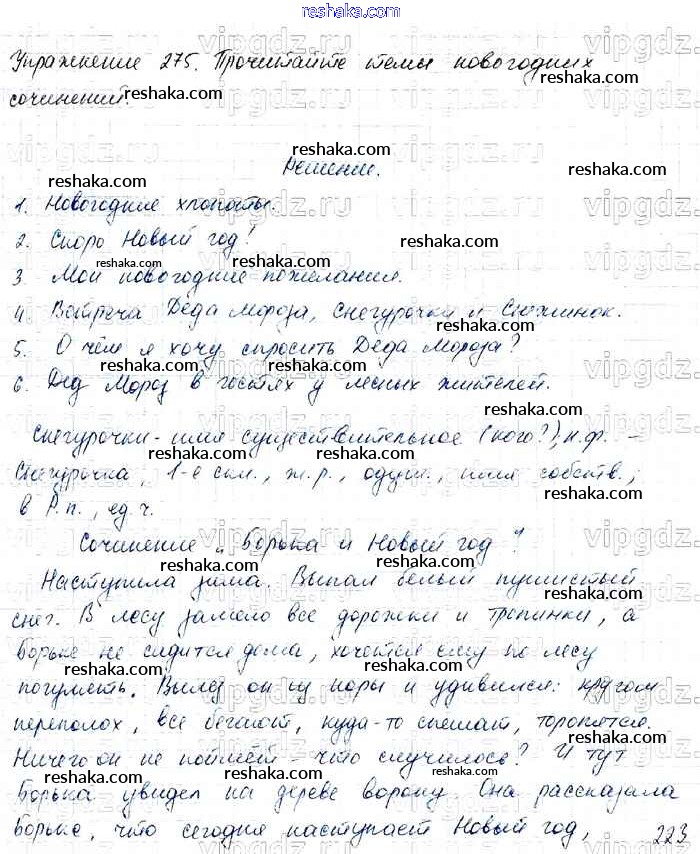 reshaka.com
Упражнение 275. Прочитайте темы новогодних
сочинений.
Решение.
1. Новогодние хлопоты.
2. Скоро Новый год!
3. Мои новогодние пожелания.
4. Встреча Деда Мороза, Снегурочки и Снежинок.
5. О чём я хочу спросить Деда Мороза?
6. Дед Мороз в гостях у лесных жителей.
Снегурочки - имя существительное (кого?), н.ф. -
Снегурочка, 1-е скл., ж.р., одуш., имя собств.;
в Р.п., ед.ч.
Сочинение „Борька и Новый год"
Наступила зима. Выпал белый пушистый
снег. В лесу замело все дорожки и тропинки, а
Борьке не сидится дома, хочется ему по лесу
погулять. Вылез он из норы и удивился: кругом
переполох, все бегают, куда-то спешат, торопятся.
Ничего он не поймёт - что случилось? И тут
Борька увидел на дереве ворону. Она рассказала
Борьке, что сегодня наступает Новый год,
223